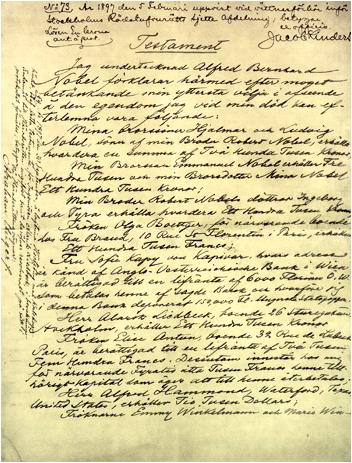 No 73. År 1897 den 5 Februari uppvist vid vittnesförhör inför
Stockholms Rådstufvurätt sjette Afdelning, betygar
Testament
Jag undertecknad Alfred Bernhard
Nobel förklarar härmed efter moget
betänkande min yttersta vilja i afseende
å den egendom jag vid min död kan ef-
terlemna vara följande:
Mina Brorsöner Hjalmar och Ludvig
Nobel, söner af min Broder Robert Nobel, erhålla
hvardera en Summa af Två Hundra Tusen Kronor;
Min Brorson Emmanuel Nobel erhåller Tre
Hundra Tusen och min Brorsdotter Mina Nobel
Ett Hundra Tusen Kronor;
Min Broder Robert Nobels döttrar Ingeborg
och Tyra erhålla hvardera Ett Hundra Tusen Kronor
Fröken Olga Boettger, för närvarande boende
hos Fru Brand, 10 Rue St Florentin i Paris, erhåller
Ett Hundra Tusen Francs;
Fru Sofie Kapy von Kapivar, hvars adress
är känd af Anglo-Oesterreichische Bank i Wien
är berättigad till en lifränta af 6000 Florins Ö.W.
som betalas henne af sagde Bank och hvarför jag
i denna Bank deponerat 150,000 Fl. i Ungerska Statspapper.
Herr Alarik Liedbeck, boende 26 Sturegatan
Stockholm, erhåller Ett Hundra Tusen Kronor;
Fröken Elise Antun, boende 32 Rue de Lubeck
Paris, är berättigad till en lifränta af Två Tusen
Fem Hundra Francs. Dessutom innestår hos mig
för närvarande Fyratio åtta Tusen Francs henne till-
hörigt Kapital som eger att till henne återbetalas;
Herr Alfred Hammond, Waterford, Texas
United States, erhåller Tio Tusen Dollars;
Fröknarne Emmy Winkelmann och Marie Win-